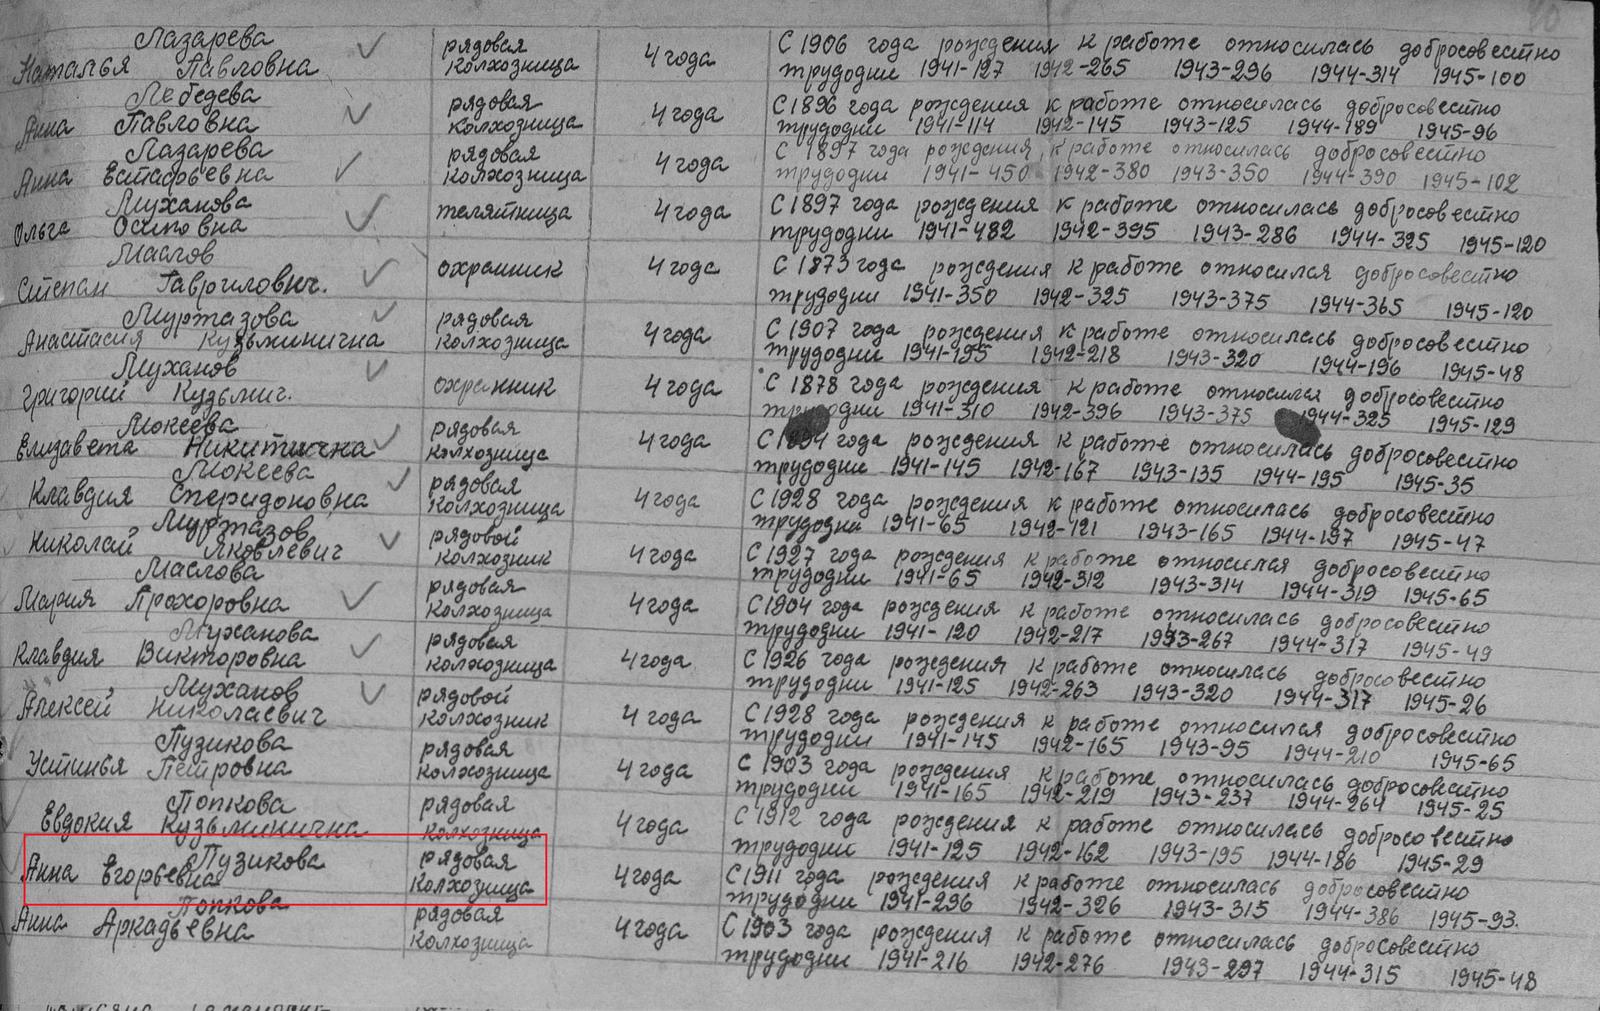 Лазарева
Наталья Павловна рядовая колхозница 4 года С 1906 года рождения к работе относилась добросовестно
трудодни 1941-127 1942-265 1943-296 1944-314 1945-100
Лебедева
Анна Павловна рядовая колхозница 4 года С 1896 года рождения к работе относилась добросовестно
трудодни 1941-114 1942-145 1943-125 1944-189 1945-96
Лазарева
Анна Евстафьевна рядовая колхозница 4 года С 1897 года рождения к работе относилась добросовестно
трудодни 1941-450 1942-380 1943-350 1944-390 1945-102
Муханова
Ольга Осиповна телятница 4 года С 1897 года рождения к работе относилась добросовестно
трудодни 1941-482 1942-395 1943-286 1944-325 1945-120
Маслов
Степан Гаврилович. охранник 4 года С 1873 года рождения к работе относился добросовестно
трудодни 1941-350 1942-325 1943-375 1944-365 1945-120
Муржазова
Анастасия Кузьминична рядовая колхозница 4 года С 1907 года рождения к работе относилась добросовестно
трудодни 1941-195 1942-218 1943-320 1944-196 1945-48
Муханов
Григорий Кузьмич. охранник 4 года С 1878 года рождения к работе относился добросовестно
трудодни 1941-310 1942-396 1943-375 1944-325 1945-129
Мокеева
Елизавета Никитична рядовая колхозница 4 года С 1894 года рождения к работе относилась добросовестно
трудодни 1941-145 1942-167 1943-135 1944-195 1945-35
Мокеева
Клавдия Сперидоновна рядовая колхозница 4 года С 1928 года рождения к работе относилась добросовестно
трудодни 1941-65 1942-121 1943-165 1944-197 1945-47
Муржазов
Николай Яковлевич рядовой колхозник 4 года С 1927 года рождения к работе относился добросовестно
трудодни 1941-65 1942-312 1943-314 1944-319 1945-65
Маслова
Мария Прохоровна рядовая колхозница 4 года С 1904 года рождения к работе относилась добросовестно
трудодни 1941-120 1942-217 1943-267 1944-317 1945-49
Муханова
Клавдия Викторовна рядовая колхозница 4 года С 1926 года рождения к работе относилась добросовестно
трудодни 1941-125 1942-263 1943-320 1944-317 1945-26
Муханов
Алексей Николаевич рядовой колхозник 4 года С 1928 года рождения к работе относился добросовестно
трудодни 1941-145 1942-165 1943-95 1944-210 1945-65
Пузикова
Устинья Петровна рядовая колхозница 4 года С 1903 года рождения к работе относилась добросовестно
трудодни 1941-165 1942-219 1943-237 1944-264 1945-25
Попкова
Евдокия Кузьминична рядовая колхозница 4 года С 1912 года рождения к работе относилась добросовестно
трудодни 1941-125 1942-162 1943-195 1944-186 1945-29
Пузикова
Анна Егорьевна рядовая колхозница 4 года С 1911 года рождения к работе относилась добросовестно
трудодни 1941-296 1942-326 1943-315 1944-386 1945-93.
Попкова
Анна Аркадьевна рядовая колхозница 4 года С 1903 года рождения к работе относилась добросовестно
трудодни 1941-216 1942-276 1943-297 1944-315 1945-48